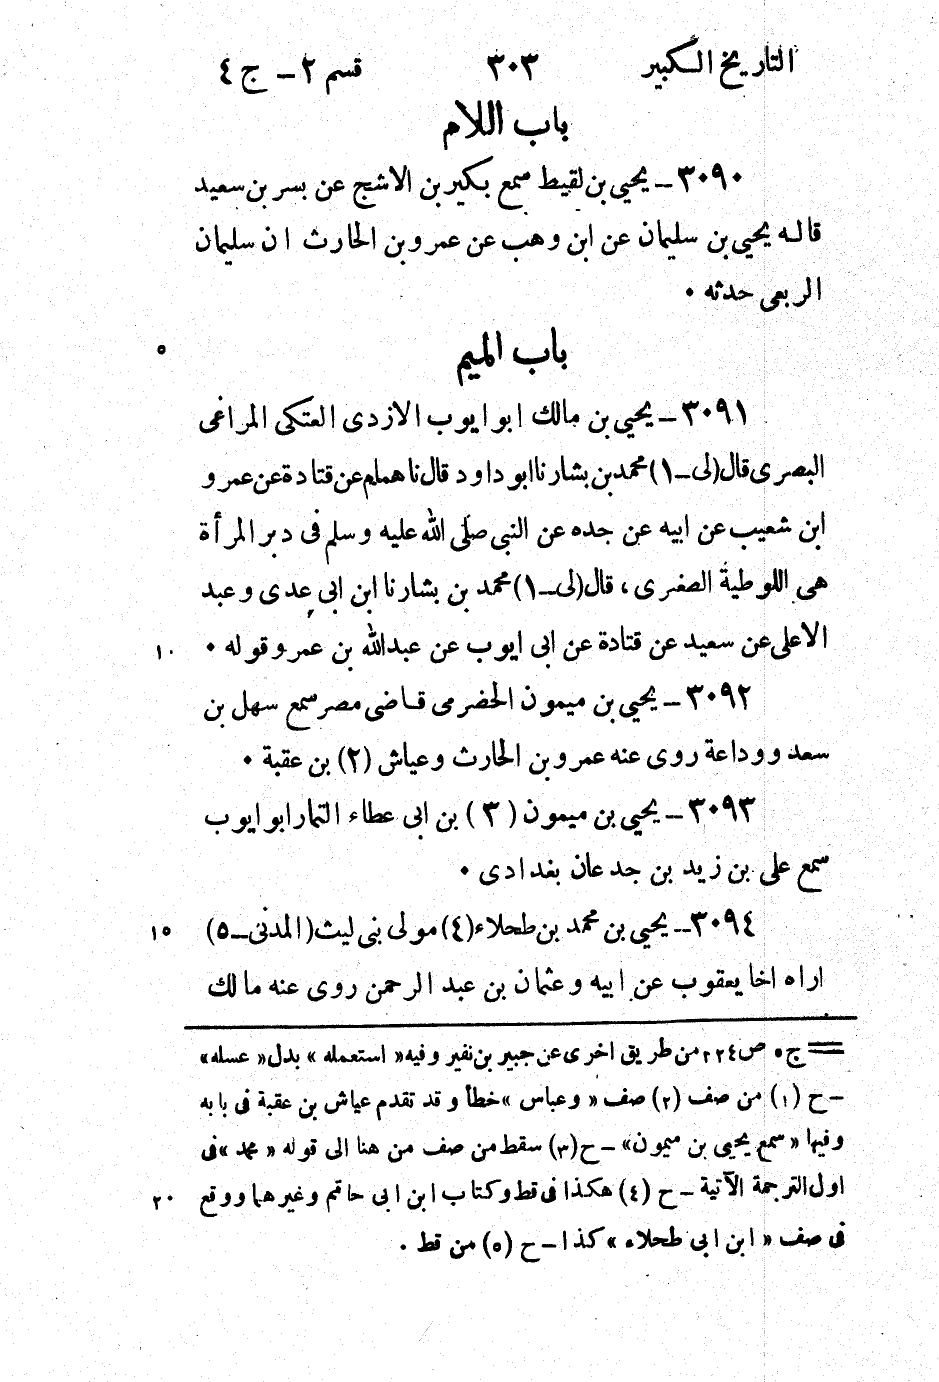 التاريخ الكبير ٣٠٣ قسم ٢ - ج ٤
باب اللام
٣٠٩٠ - يحيى بن لقيط سمع بكير بن الاشج عن بسر بن سعيد
قاله يحيى بن سليمان عن ابن وهب عن عمرو بن الحارث ان سليمان
الربعى حدثه ٠
باب الميم ٥
٣٠٩١ - يحيى بن مالك ابو ايوب الازدى العتكى المراغى
البصرى قال (لى - ١) محمد بن بشار نا ابو داود قال نا همام عن قتادة عن عمرو
ابن شعيب عن ابيه عن جده عن النبى صلى الله عليه وسلم فى دبر المرأة
هى اللوطية الصغرى ، قال (لى - ١) محمد بن بشار نا ابن ابى عدى وعبد
الاعلى عن سعيد عن قتادة عن ابى ايوب عن عبدالله بن عمرو قوله ٠ ١٠
٣٠٩٢ - يحيى بن ميمون الحضرمى قاضى مصر سمع سهل بن
سعد ووداعة روى عنه عمرو بن الحارث وعياش (٢) بن عقبة ٠
٣٠٩٣ - يحيى بن ميمون (٣) بن ابى عطاء التمار ابو ايوب
سمع على بن زيد بن جدعان بغدادى ٠
٣٠٩٤ - يحيى بن محمد بن طحلاء (٤) مولى بنى ليث (المدنى - ٥) ١٥
اراه اخا يعقوب عن ابيه وعثمان بن عبد الرحمن روى عنه مالك
= ج ٥ ص ٢٢٤ من طريق اخرى عن جبير بن نفير وفيه « استعمله » بدل « عسله »
- ح (١) من صف (٢) صف « وعباس » خطأ وقد تقدم عياش بن عقبة فى بابه
وفيها « سمع يحيى بن ميمون» - ح (٣) سقط من صف من هنا الى قوله « محمد » فى
اول الترجمة الآتية - ح (٤) هكذا فى قط وكتاب ابن ابى حاتم وغيرهما ووقع ٢٠
فى صف « ابن ابى طحلاء » كذا - ح (٥) من قط ٠